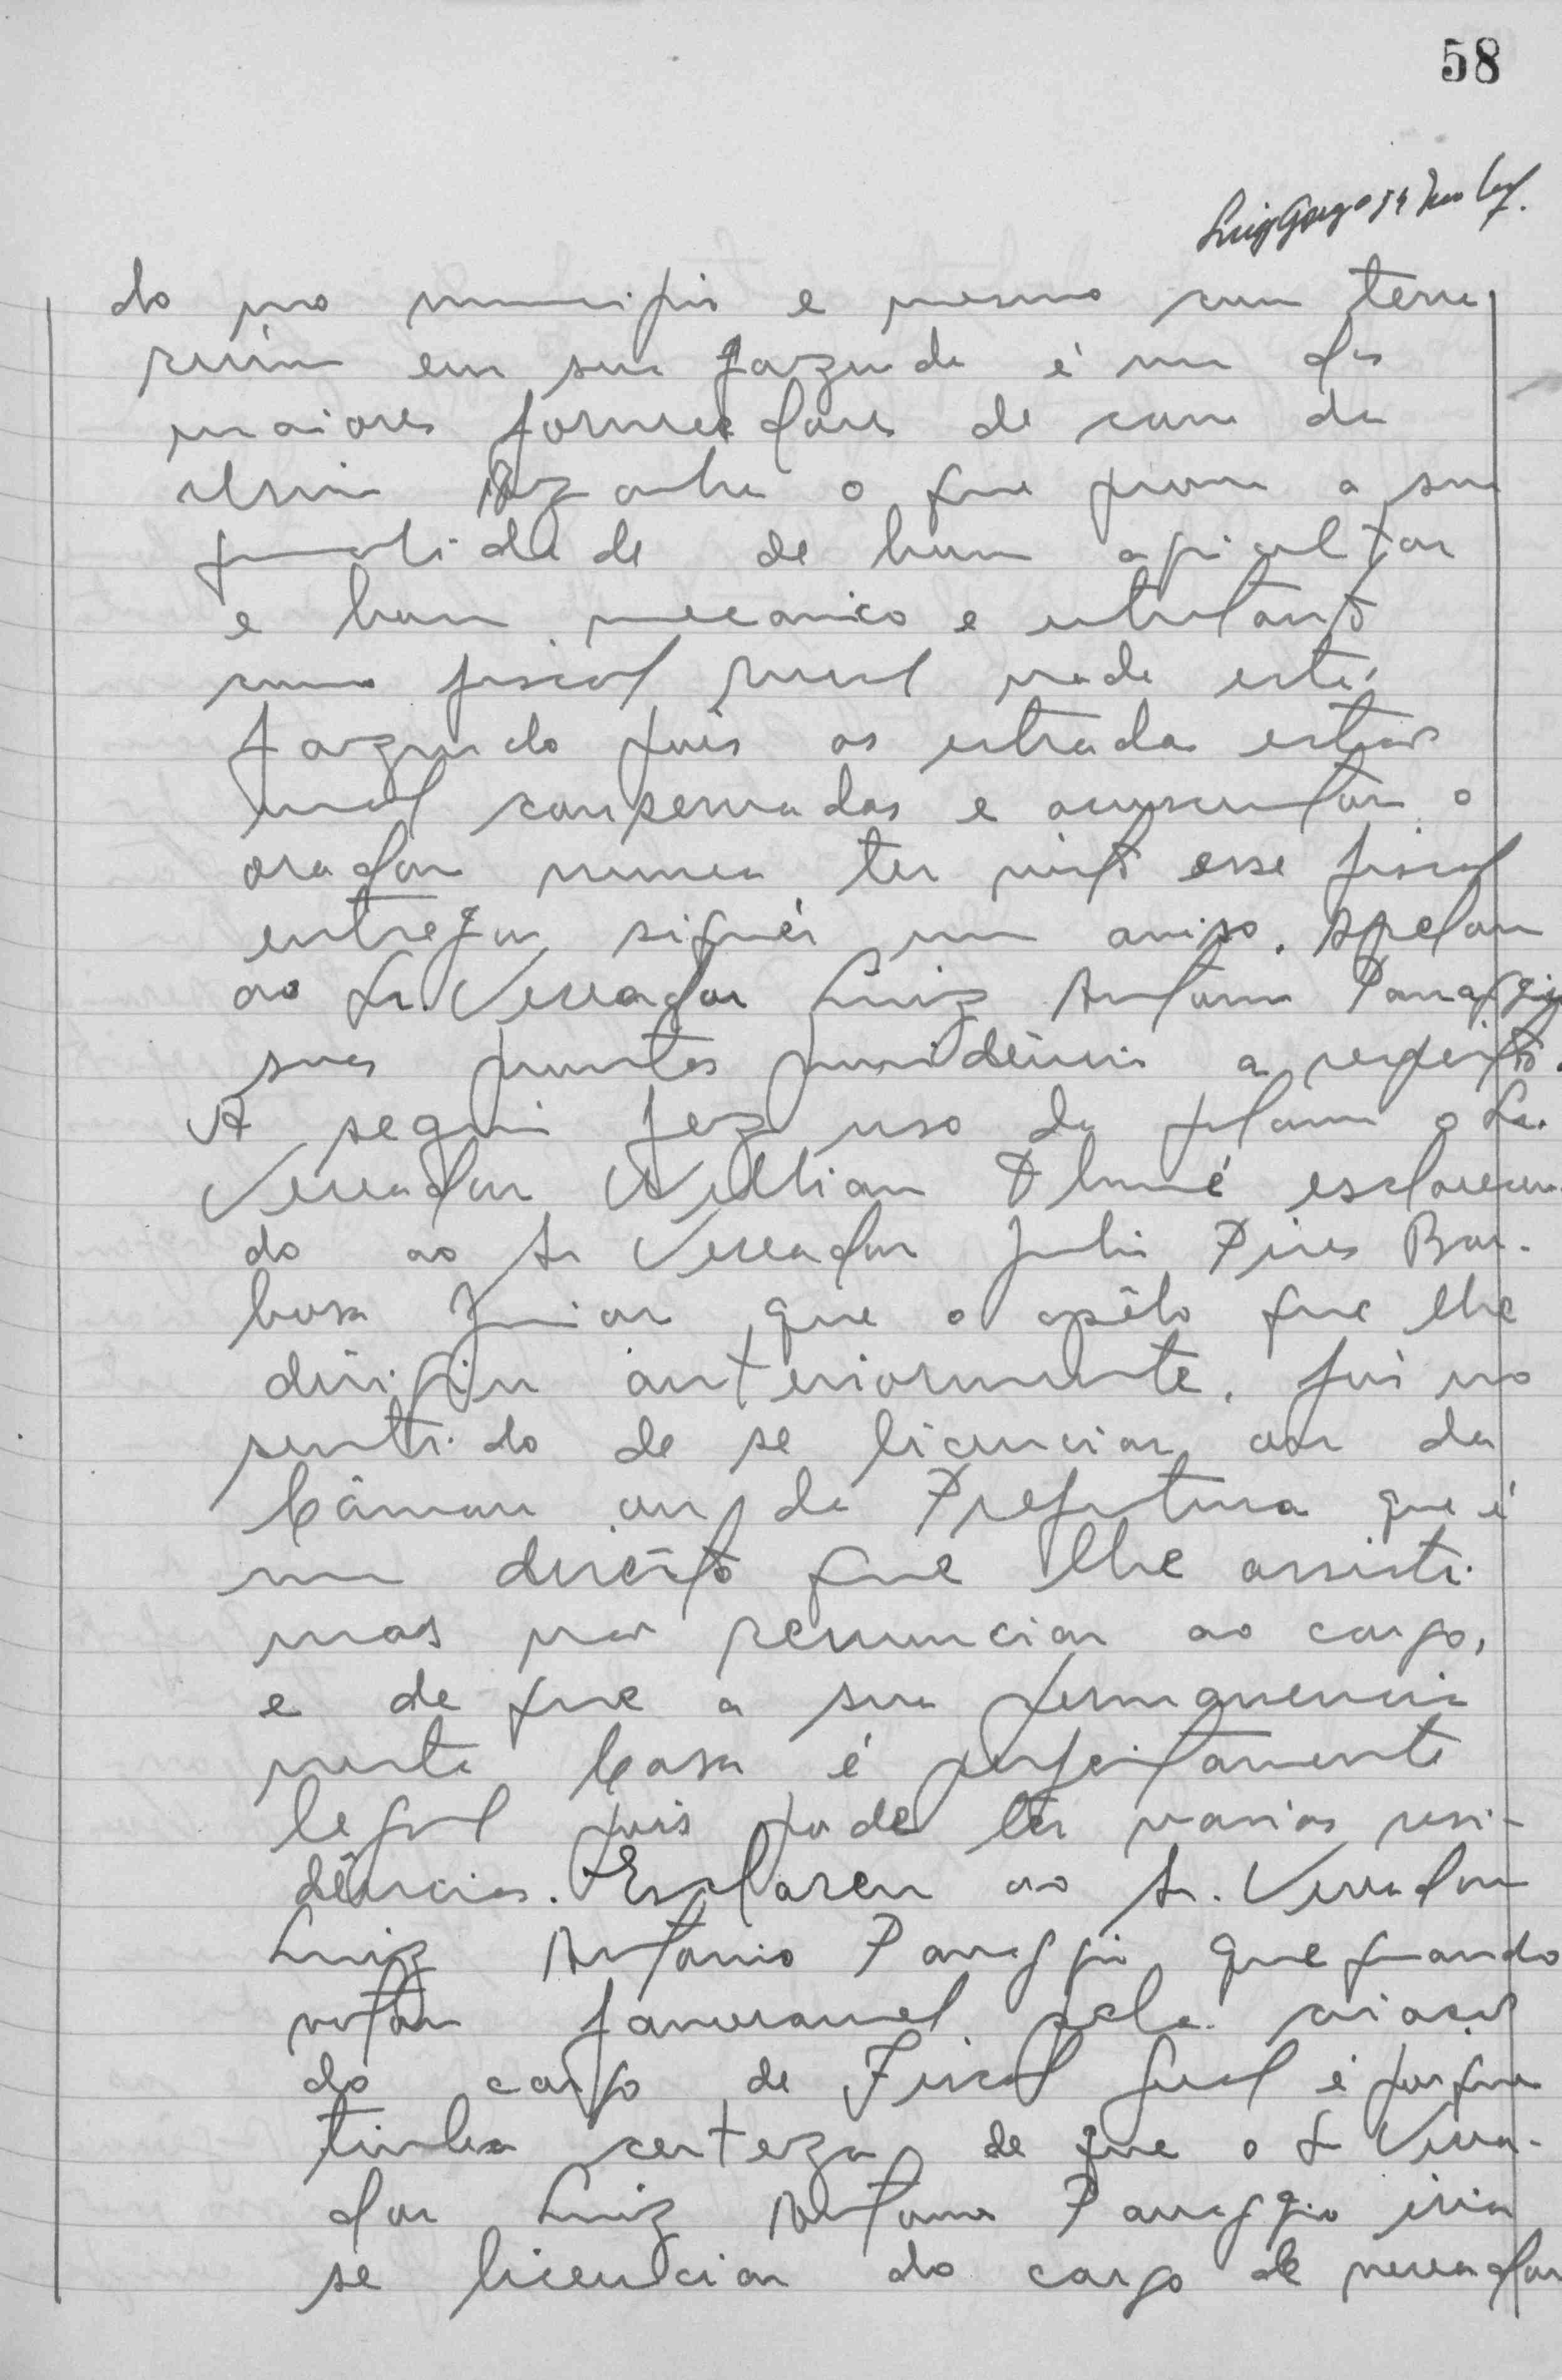 58
do no municipio e mesmo com terra
ruim em sua fazenda é um dos
maiores fornecedores de cana da
Usina o que prova a sua
qualidade de bom agricultor
e bom mecanico e entretanto
como fiscal rural nada está
fazendo pois as estradas estão
mal conservadas e acrescentou o
orador nunca ter visto esse fiscal
entregar siquér um aviso. Apelou
ao Sr. Vereador Luiz Antonio Panaggio
suas prontas providências a respeito.
A seguir fez uso da palavra o Sr.
Vereador Willian esclarecen-
do ao Sr Vereador Julio Pires Bar-
bosa Junior que o apêlo que lhe
dirigiu anteriormente, foi no
sentido de se licenciar ou da
Câmara ou da Prefeitura que é
um direito que lhe assiste
mas não renunciar ao cargo,
e de que a sua permanencia
nesta Casa é perfeitamente
legal pois pode ter varias resi-
dências. Esclareceu ao Sr. Vereador
Luiz Antonio Panaggio que quando
votou favoravel pela criação
do cargo de Fiscal Geral é porque
tinha certeza de que o Sr Verea-
dor Luiz Antonio Panaggio iria
se licenciar do cargo de vereador